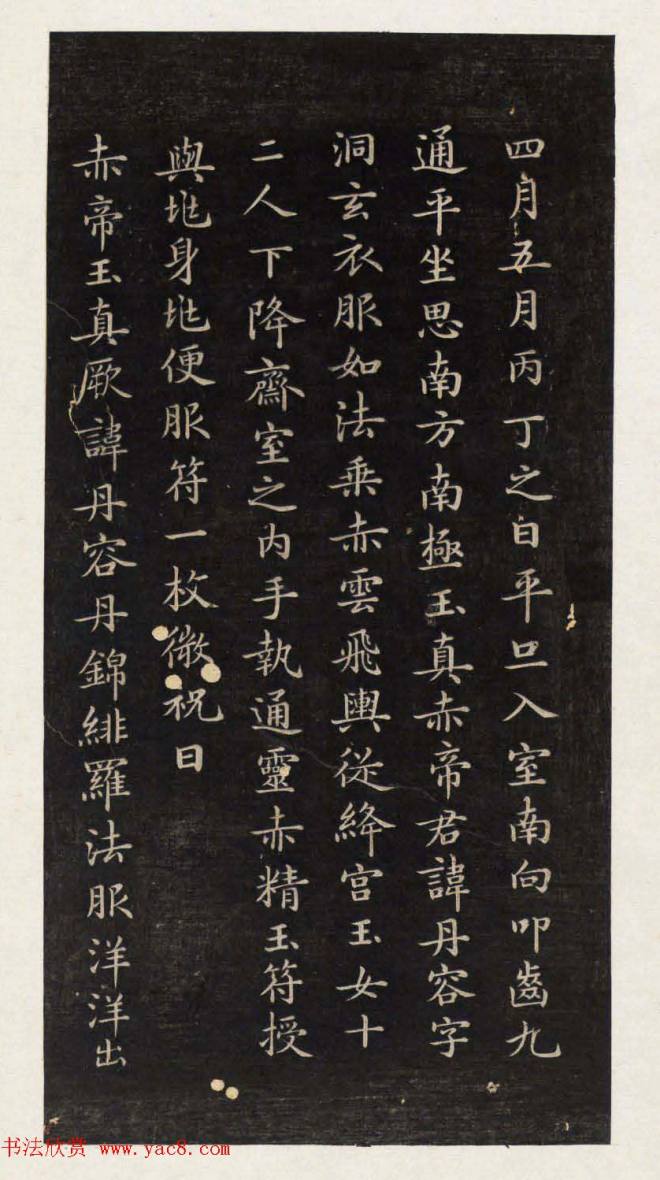 四月五月丙丁之日平旦入室南向叩齒九
通平坐思南方南極玉真赤帝君諱丹容字
洞玄衣服如法乗赤雲飛輿從絳宫玉女十
二人下降齋室之内手執通靈赤精玉符授
與兆身兆便服符一枚微祝曰
赤帝玉真厥諱丹容丹錦緋羅法服洋洋出
书法欣赏 www.yac8.com